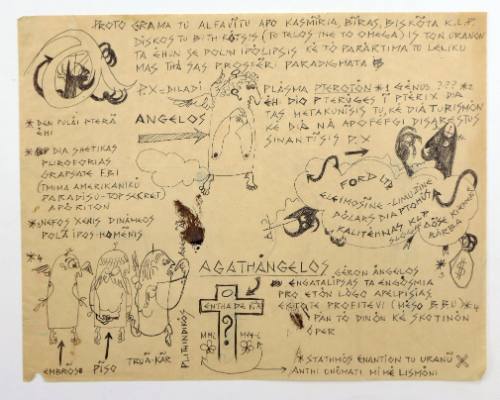 PROTO GRAMA TU ALFAVITU APO KASMIRIA, BIRAS, BISKOTA K.L.P.
DISKOS TU BITHKOTSIS (TO TALOS THE TO OMEGA) IS TON URANON
TA EHUN SE POLIN IPOLIPSIS KE TO PARARTIMA TU LEXIKU
MAS THA SAS PROSFERI PARADIGMATA
P.X = DILADI
ANGELOS
PLASMA PTEROTON *1 GENUS ??? *2
EHI DIO PTERUGES I PTERIX DIA
TAS METAKINISIS TU, KE DIA TURISMON
KE DIA NA APOFEFGI DISARESTUS
SINANTISIS P.X
* DEN PULAI PTERA
EHI
DIA SHETIKAS
PLIROFORIAS
GRAPSATE EBI
(TMIMA AMERIKANIKU
PARADISU-TOP SECRET)
APORITON
*NEFOS XENIS DINAMEOS
POLA IPOS-HOMENIS
FORD LTD
ELEIMOSINE-LIMUZINE
DOLARS DIA PTOHUS
KALITEHNAS KLP
*3
*4
AGATHANGELOS
GERON ANGELOS
ENGATALIPSAS TA ENGOSMIA
PRO ETON LOGO APELPISIAS
EKTOTE PROFITEVI (MESO BBU) *4
PAN TO DINON KE SKOTINON
OPER
ENTHADE
?
EMBROS
PISO
TRUA-KAR
PLITHINDIKOS
* STATHMOS ENANTION TU URANU
ANTHI ONOMATI MI ME LISMONI